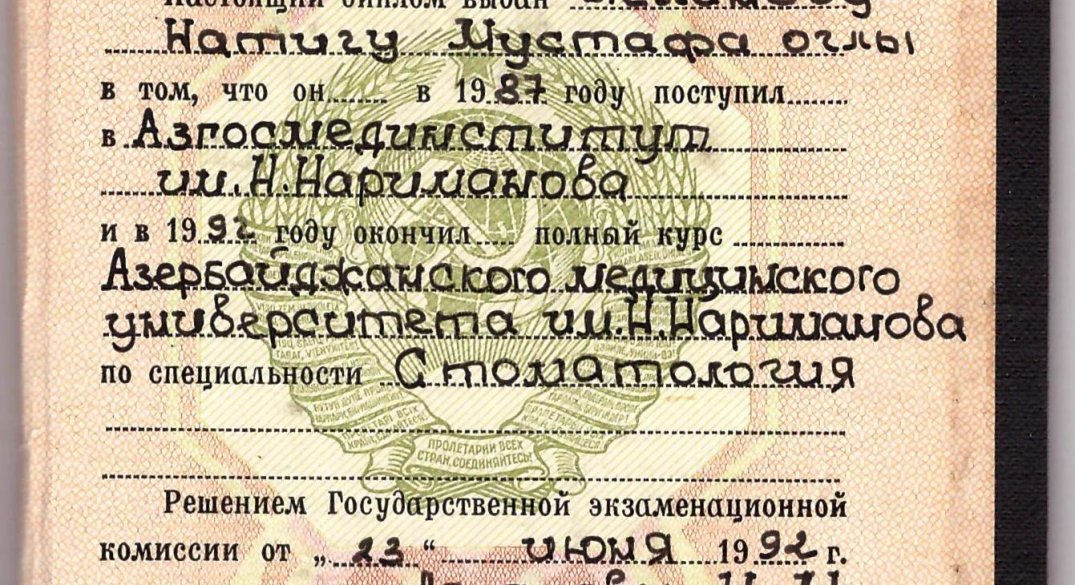 Настоящий диплом выдан
Натигу Мустафа оглы
в том, что он в 1987 году поступил
в Азгосмединститут
им. Н. Нариманова
и в 1992 году окончил полный курс
Азербайджанского медицинского
университета им. Н. Нариманова
по специальности Стоматология
ПРОЛЕТАРИИ ВСЕХ
СТРАН, СОЕДИНЯЙТЕСЬ!
Решением Государственной экзаменационной
комиссии от „23“ июня 1992 г.